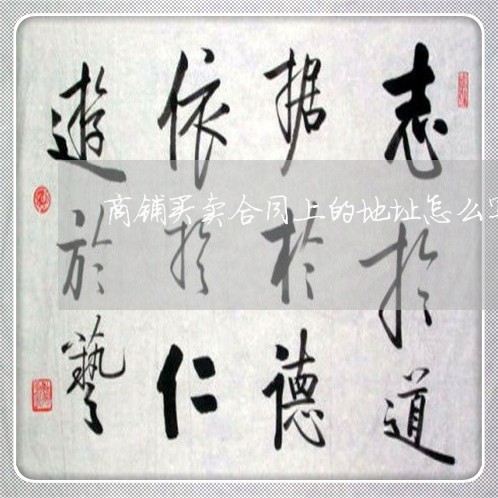 志於道
据於德
依於仁
遊於藝
商铺买卖合同上的地址怎么